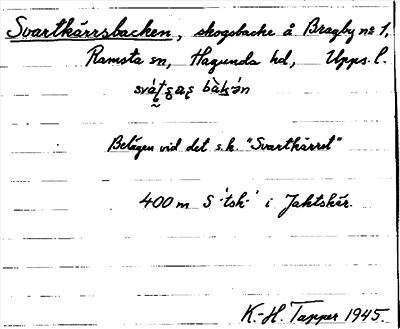 Svartkärrsbacken, skogsbacke å Bragby nº 1,
Ramsta sn, Hagunda hd, Upps. l.
Belägen vid det s.k. "Svartkärret"
400 m S 'tsk' i Jaktskär.
K.-H. Tapper 1945.